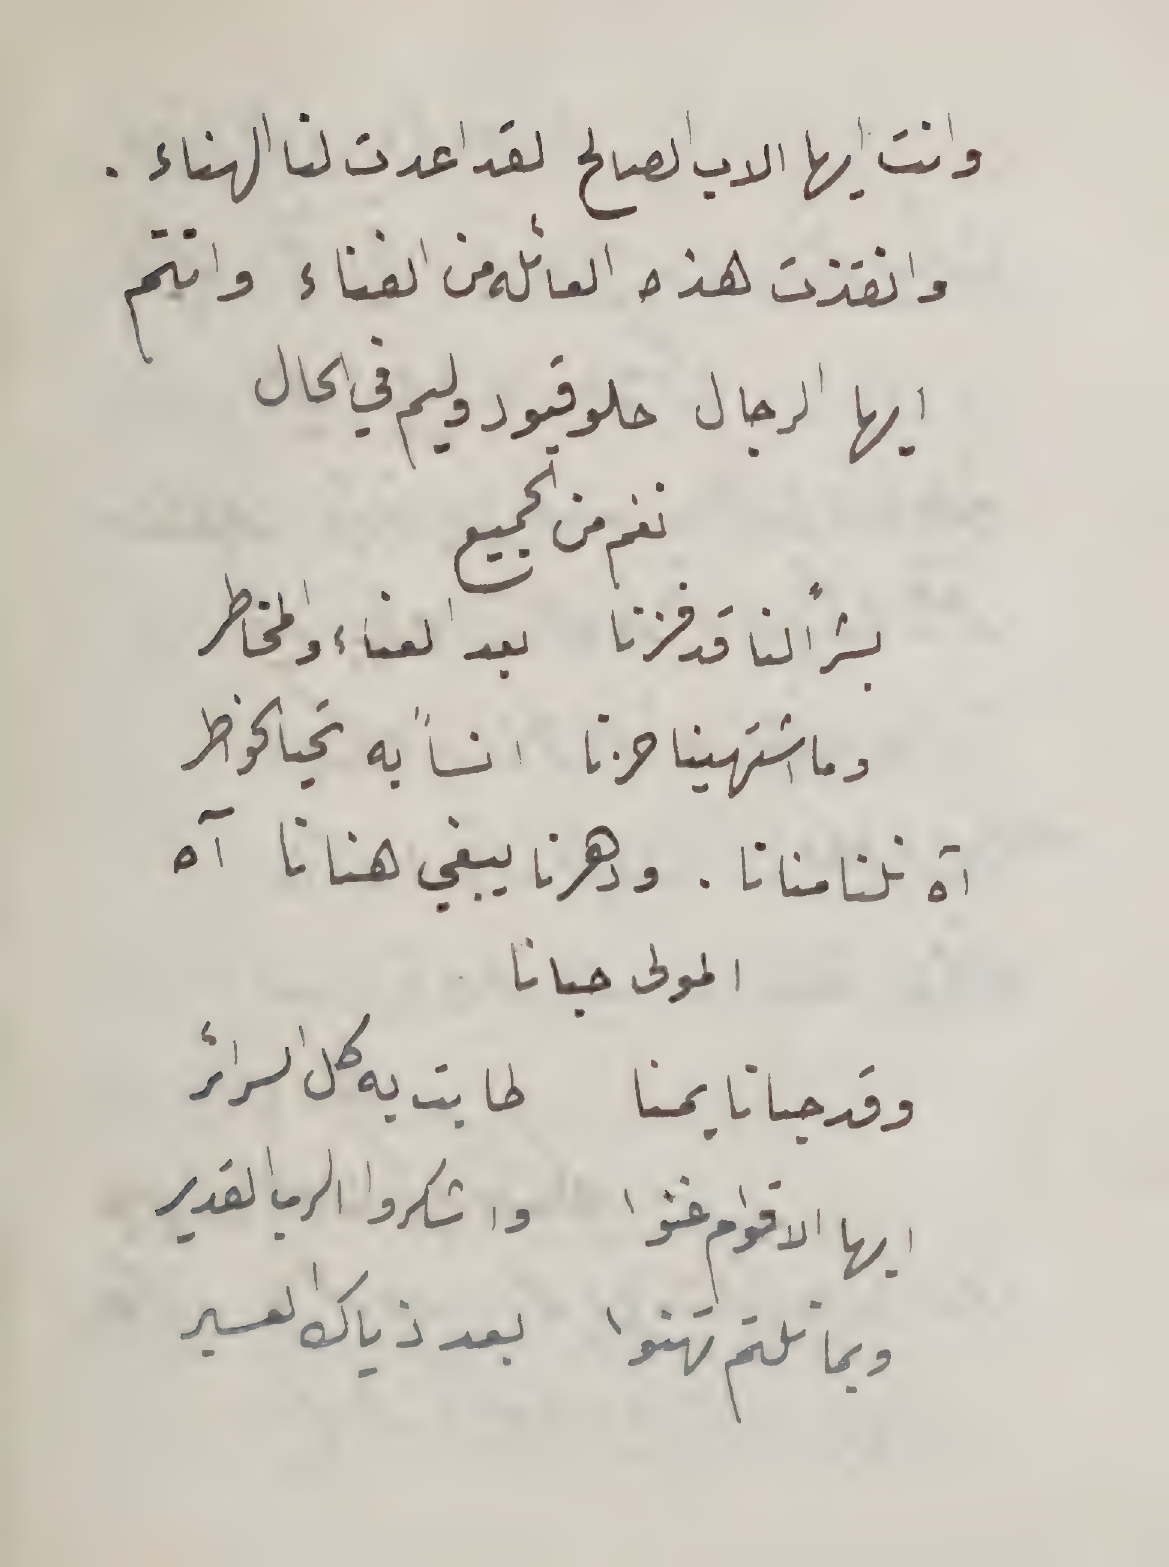 وانت ايها الاب الصالح لقد اعدت لنا الهناء .
وانقذت هذه العائله من الفناء وانتم
ايها الرجال حلو قيود وليم في الحال
نغم من الجميع
بشراً لنا قد فزنا بعد العناء والمخاطر
وما اشتهينا حزنا انساً به تحيا الخواطر
آه نلنا منانا . ودهرنا يبغي هنانا آه
المولى حبانا
وقد حبانا يمنا طابت به كل السرائر
ايها الاقوام غنوا واشكروا الرب القدير
وبما نلتم تهنوا بعد ذياك العسير